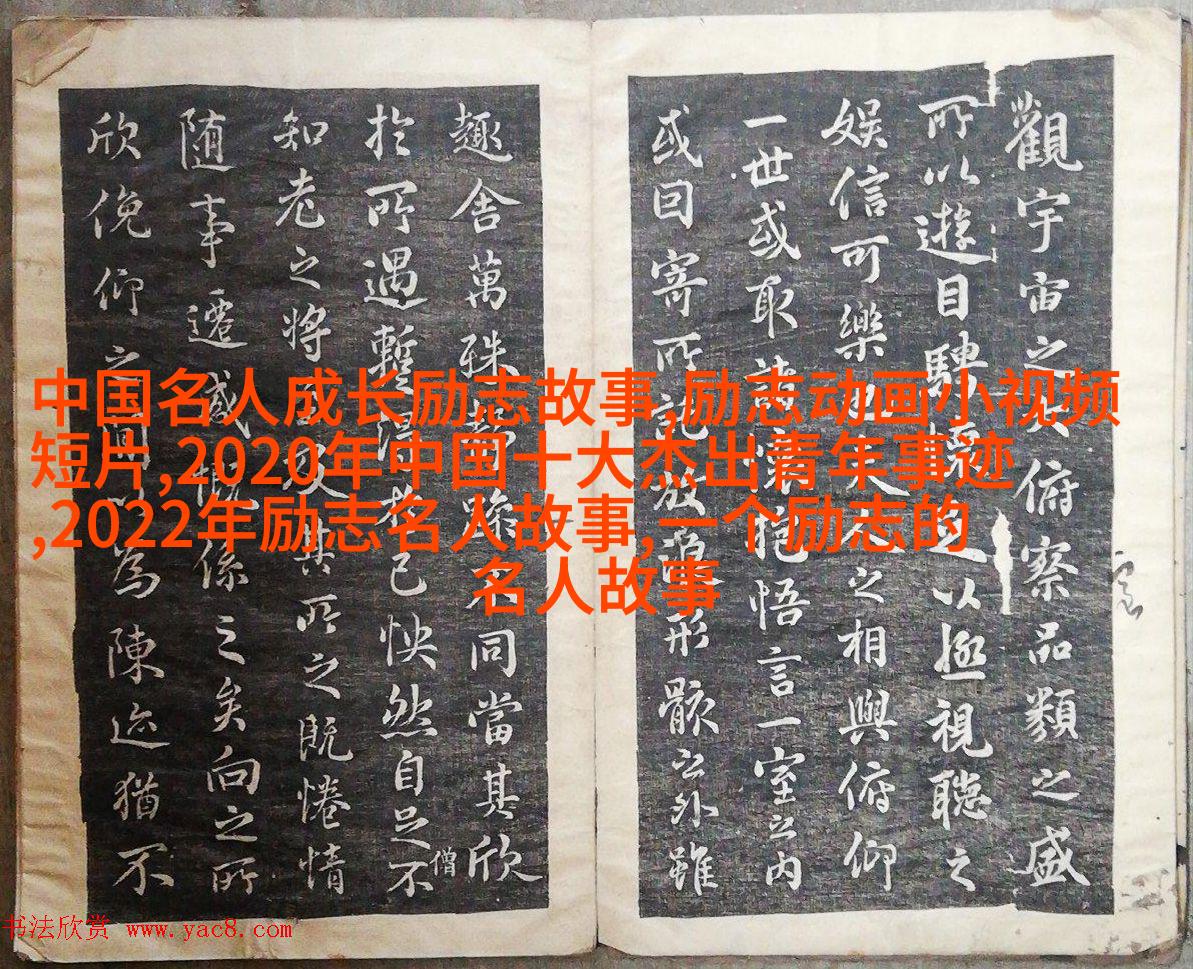 觀宇宙之大俯察品類之盛
所以遊目騁懷足以極視聽之
娛信可樂也夫人之相與俯仰
一世或取諸懷抱悟言一室之內
或因寄所託放浪形骸之外雖
趣舍萬殊靜躁不同當其欣
於所遇暫得於己怏然自足不
僧
知老之將至及其所之既惓情
隨事遷感慨係之矣向之所
欣俛仰之間以為陳迹猶不
中国名人成长励志故事,励志动画小视频
短片,2020年中国十大杰出青年事迹
,2022年励志名人故事,一个励志的
名人故事
书法欣赏 www.yac8.com